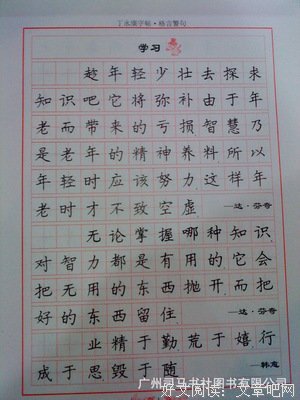 丁永康字帖·格言警句
学习
趁年轻少壮去探求
知识吧它将弥补由于年
老而带来的亏损智慧乃
是老年的精神养料所以
年轻时应该努力这样年
老时才不致空虚 —达·芬奇
无论掌握哪种知识
对智力都是有用的它会
把无用的东西抛开而把
好的东西留住 —达·芬奇
业精于勤荒于嬉行
成于思毁于随 —韩愈
广州司马书社图书有限公司
好文阅读:文章吧网